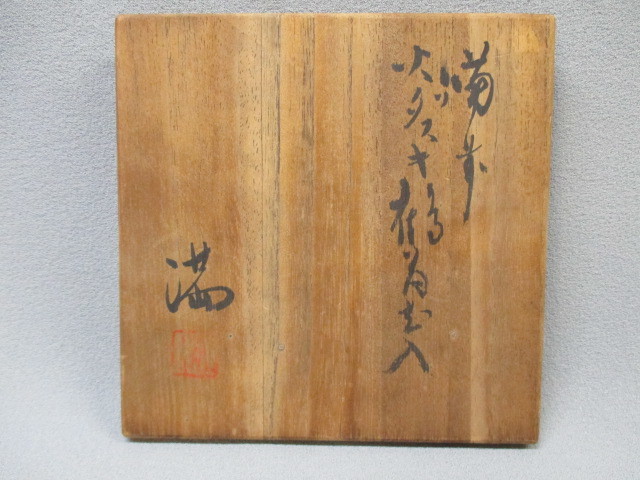 備前
火タスキ鶴首花入
満